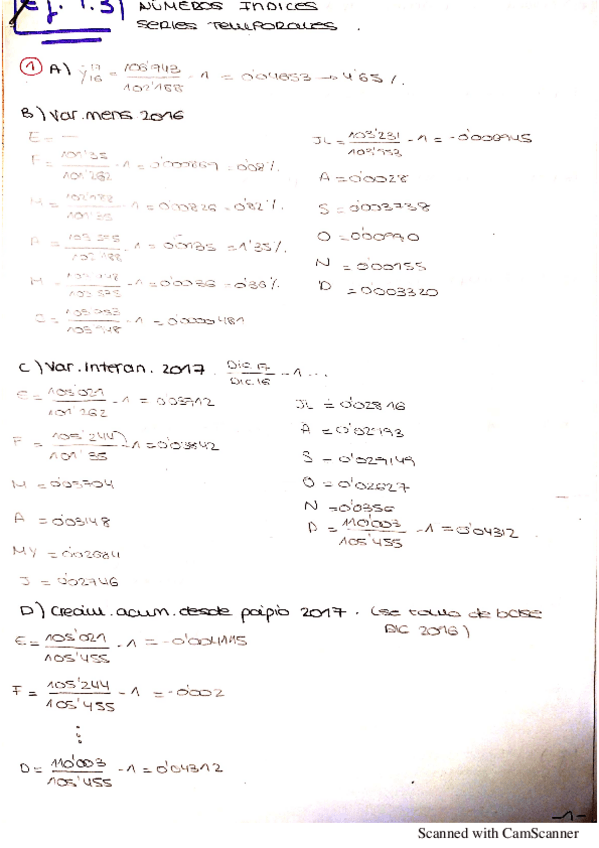 Ej. 1.3) NÚMEROS INDICES
SERIES TEMPORALES.
① A) Ẏ 17/16 = 105'943/102'188 - 1 = 0'04653 → 4'65 %.
B) Var. mens 2016
E = —
F = 101'35/101'262 - 1 = 0'000869 = 0'08 %.
M = 102'188/101'35 - 1 = 0'00826 = 0'82 %.
A = /102'188 - 1 = 0'0135 = 1'35 %.
M = - 1 = 0'0036 = 0'36 %.
- 1 = 0'0000481
JL = 103'231/ - 1 =
A = 0'0028
S = 0'003738
O = 0'00990
N = 0'00155
D = 0'003320
C) Var. interan. 2017. Dic. 17/Dic. 16 - 1 ...
E = 105'021/101'262 - 1 = 0'03712
F = 105'244/101'35 - 1 = 0'03842
M = 0'03704
A = 0'03148
MY = 0'02684
J = 0'02746
JL = 0'02816
A = 0'02193
S = 0'029149
O = 0'02627
N = 0'0356
D = 110'003/105'455 - 1 = 0'04312
D) Crecim. acum. desde ppio 2017. (se toma de base
DIC 2016)
E = 105'021/105'455 - 1 = -0'004115
F = 105'244/105'455 - 1 = -0'002
⋮
D = 110'003/105'455 - 1 = 0'04312
-1-
Scanned with CamScanner